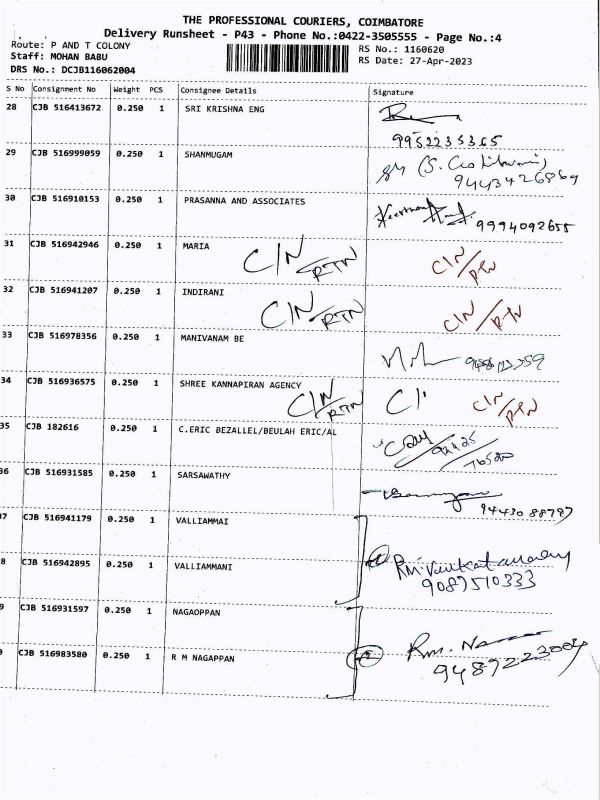 THE PROFESSIONAL COURIERS, COIMBATORE
Delivery Runsheet - P43 - Phone No.:0422-3505555 - Page No.:4
Route: P AND T COLONY RS No.: 1160620
Staff: MOHAN BABU RS Date: 27-Apr-2023
DRS No.: DCJB116062004
S No Consignment No Weight PCS Consignee Details Signature
28 CJB 516413672 0.250 1 SRI KRISHNA ENG
9952235365
29 CJB 516999059 0.250 1 SHANMUGAM
9443426869
30 CJB 516910153 0.250 1 PRASANNA AND ASSOCIATES
9994092655
31 CJB 516942946 0.250 1 MARIA C/N/RTN C/N/RTN
32 CJB 516941207 0.250 1 INDIRANI C/N/RTN C/N/RTN
33 CJB 516978356 0.250 1 MANIVANAM BE
34 CJB 516936575 0.250 1 SHREE KANNAPIRAN AGENCY C/N/RTN C/ C/N/RTN
35 CJB 182616 0.250 1 C.ERIC BEZALLEL/BEULAH ERIC/AL
76580
36 CJB 516931585 0.250 1 SARSAWATHY
94430 88797
7 CJB 516941179 0.250 1 VALLIAMMAI
8 CJB 516942895 0.250 1 VALLIAMMANI
9087510333
9 CJB 516931597 0.250 1 NAGAOPPAN
CJB 516983580 0.250 1 R M NAGAPPAN
9489223004